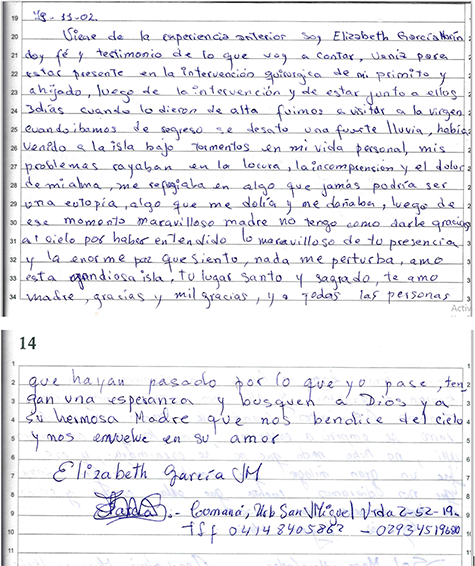 19-11-02.
Viene de la experiencia anterior Soy Elizabeth García Marín
doy fé y testimonio de lo que voy a contar, Venía para
estar presente en la intervención quirurgica de mi primito y
ahijado, luego de la intervención y de estar junto a ellos
3 días cuando lo dieron de alta fuimos a visitar a la virgen
cuando ibamos de regreso se desato una fuerte lluvia, había
venido a la isla bajo tormentos en mi vida personal, mis
problemas rayaban en la locura, la incomprension y el dolor
de mi alma, me refogiaba en algo que jamás podría ser
una eotopia, algo que me dolía y me dañaba, luego de
ese momento maravilloso madre no tengo como darle gracias
al cielo por haber entendido lo maravilloso de tu presencia
y la enorme paz que siento, nada me perturba, amo
esta grandiosa isla, tu lugar santo y sagrado, te amo
madre, gracias y mil gracias, y a todas las personas
14
que hayan pasado por lo que yo pase, ten
gan una esperanza y busquen a Dios y a
su hermosa Madre que nos bendice del cielo
y nos envuelve en su amor
Elizabeth García M
.- Cumaná, Urb San Miguel Vrda 2-52-19.
Tlf 04148405862 - 02934519680